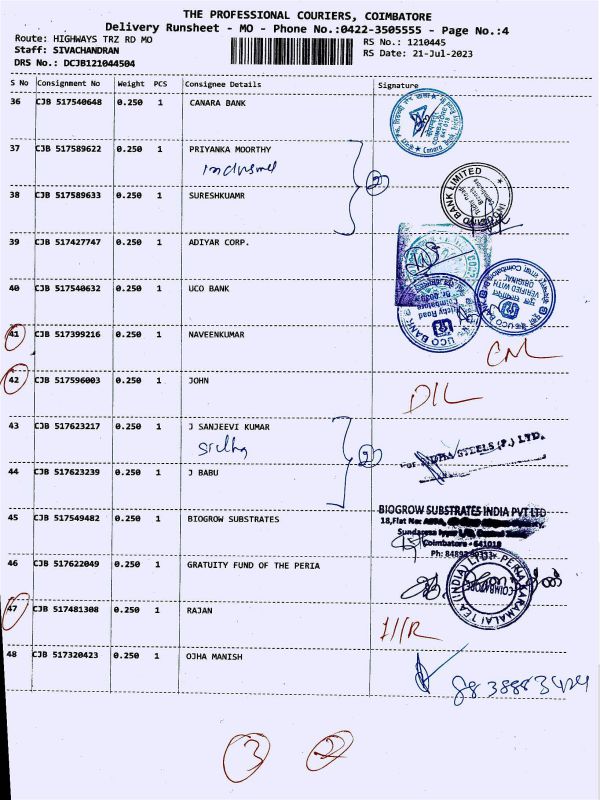 THE PROFESSIONAL COURIERS, COIMBATORE
Delivery Runsheet - MO - Phone No.:0422-3505555 - Page No.:4
Route: HIGHWAYS TRZ RD MO
RS No.: 1210445
Staff: SIVACHANDRAN
RS Date: 21-Jul-2023
DRS No.: DCJB121044504
S No Consignment No Weight PCS Consignee Details Signature
36 CJB 517540648 0.250 1 CANARA BANK
37 CJB 517589622 0.250 1 PRIYANKA MOORTHY
2
38 CJB 517589633 0.250 1 SURESHKUAMR
39 CJB 517427747 0.250 1 ADIYAR CORP.
40 CJB 517540632 0.250 1 UCO BANK
UCO BANK
VERIFIED WITH ORIGINAL
41 CJB 517399216 0.250 1 NAVEENKUMAR
42 CJB 517596003 0.250 1 JOHN
DIL
43 CJB 517623217 0.250 1 J SANJEEVI KUMAR
2
STEELS (P.) LTD.
44 CJB 517623239 0.250 1 J BABU
45 CJB 517549482 0.250 1 BIOGROW SUBSTRATES
BIOGROW SUBSTRATES INDIA PVT LTD
Coimbatore - 641018
46 CJB 517622049 0.250 1 GRATUITY FUND OF THE PERIA
COIMBATORE
47 CJB 517481308 0.250 1 RAJAN
48 CJB 517320423 0.250 1 OJHA MANISH
3 2